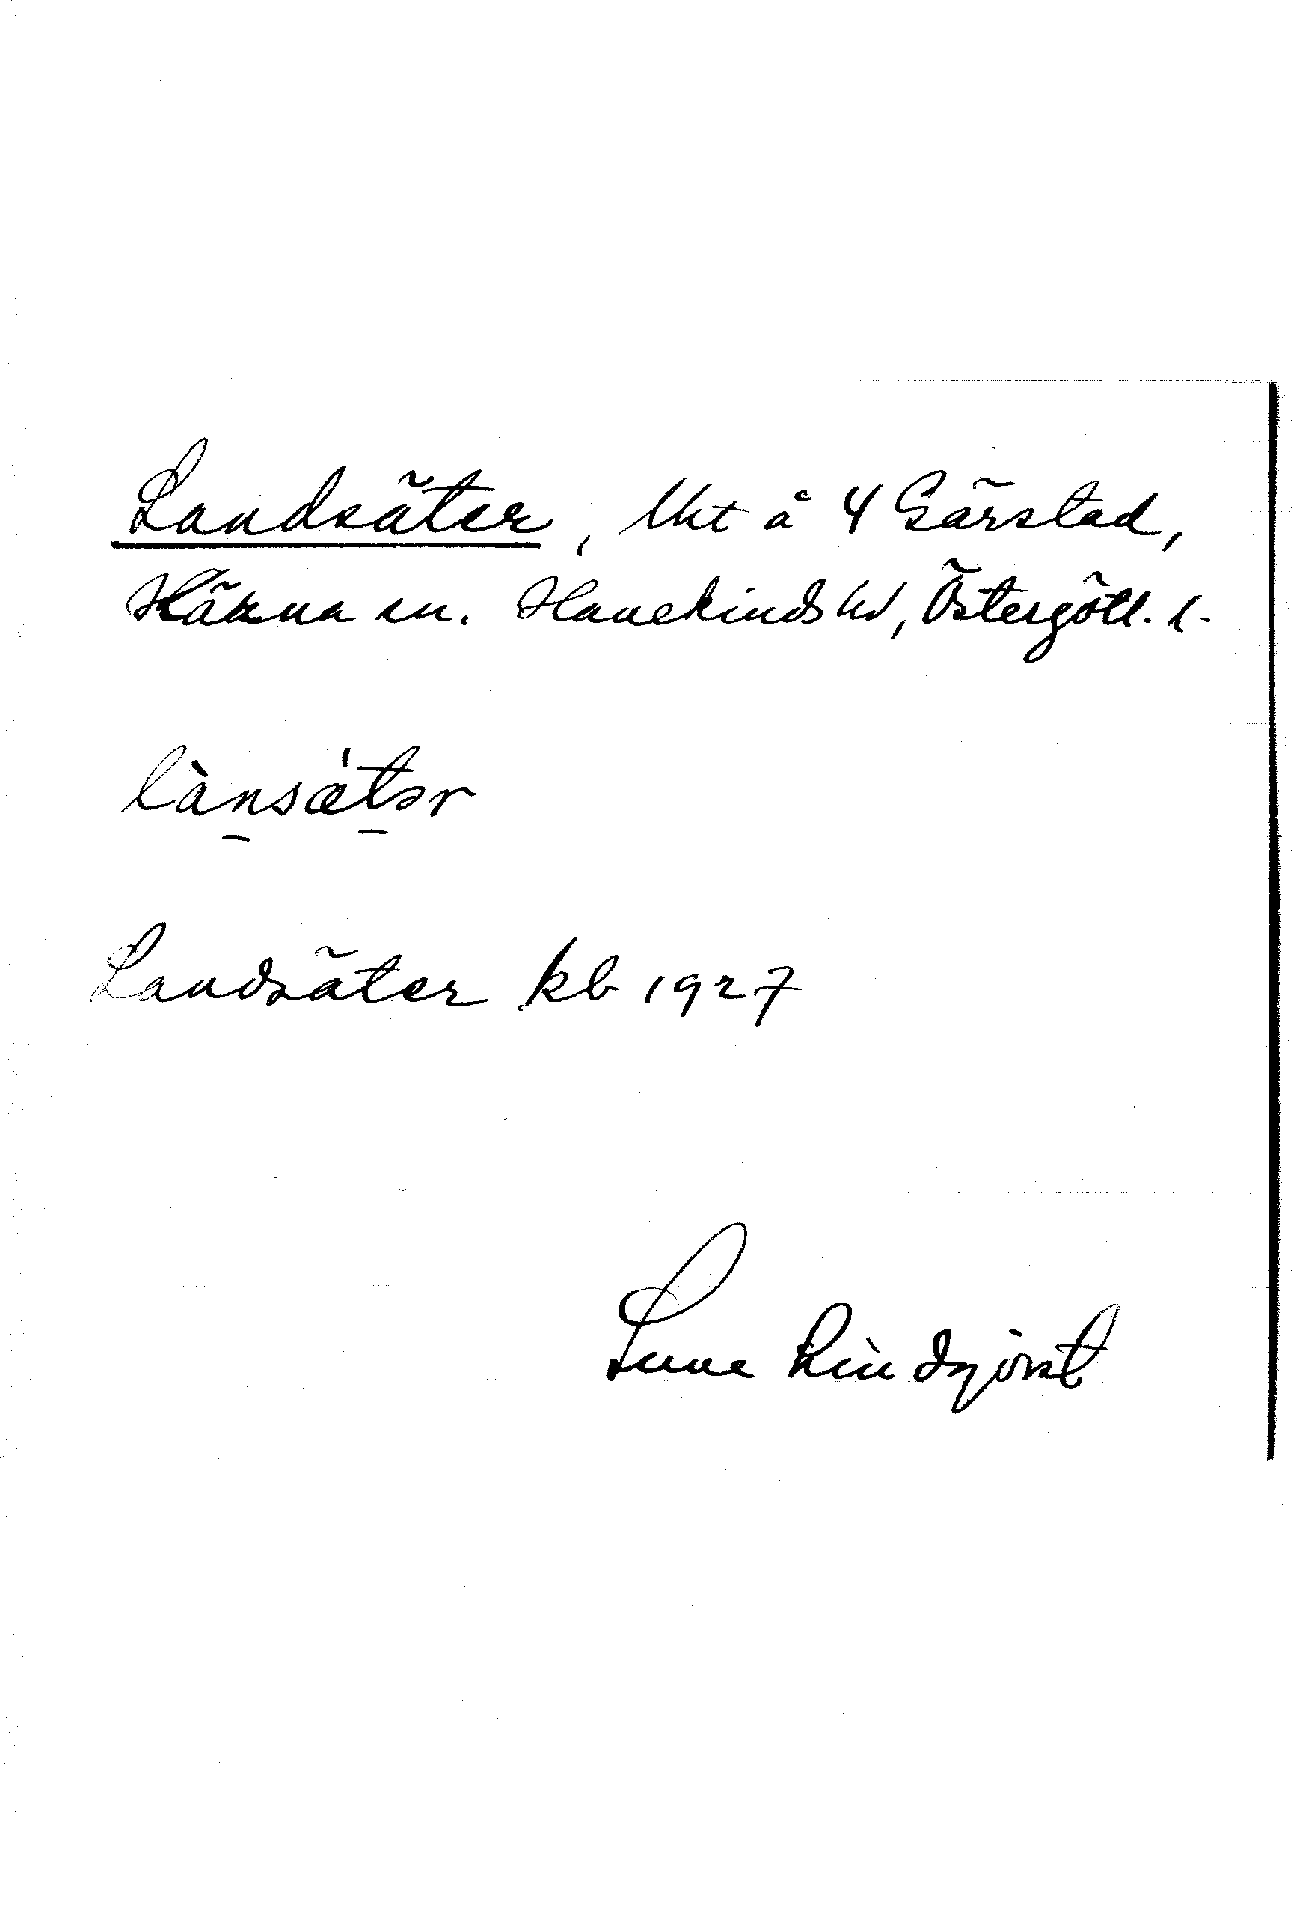 Landsäter, lht å 4 Gärstad,
Kärna sn. Hanekinds hd, Östergötl. l.
lànsǽtər
Landsäter kb 1927
Sune Lindqvist